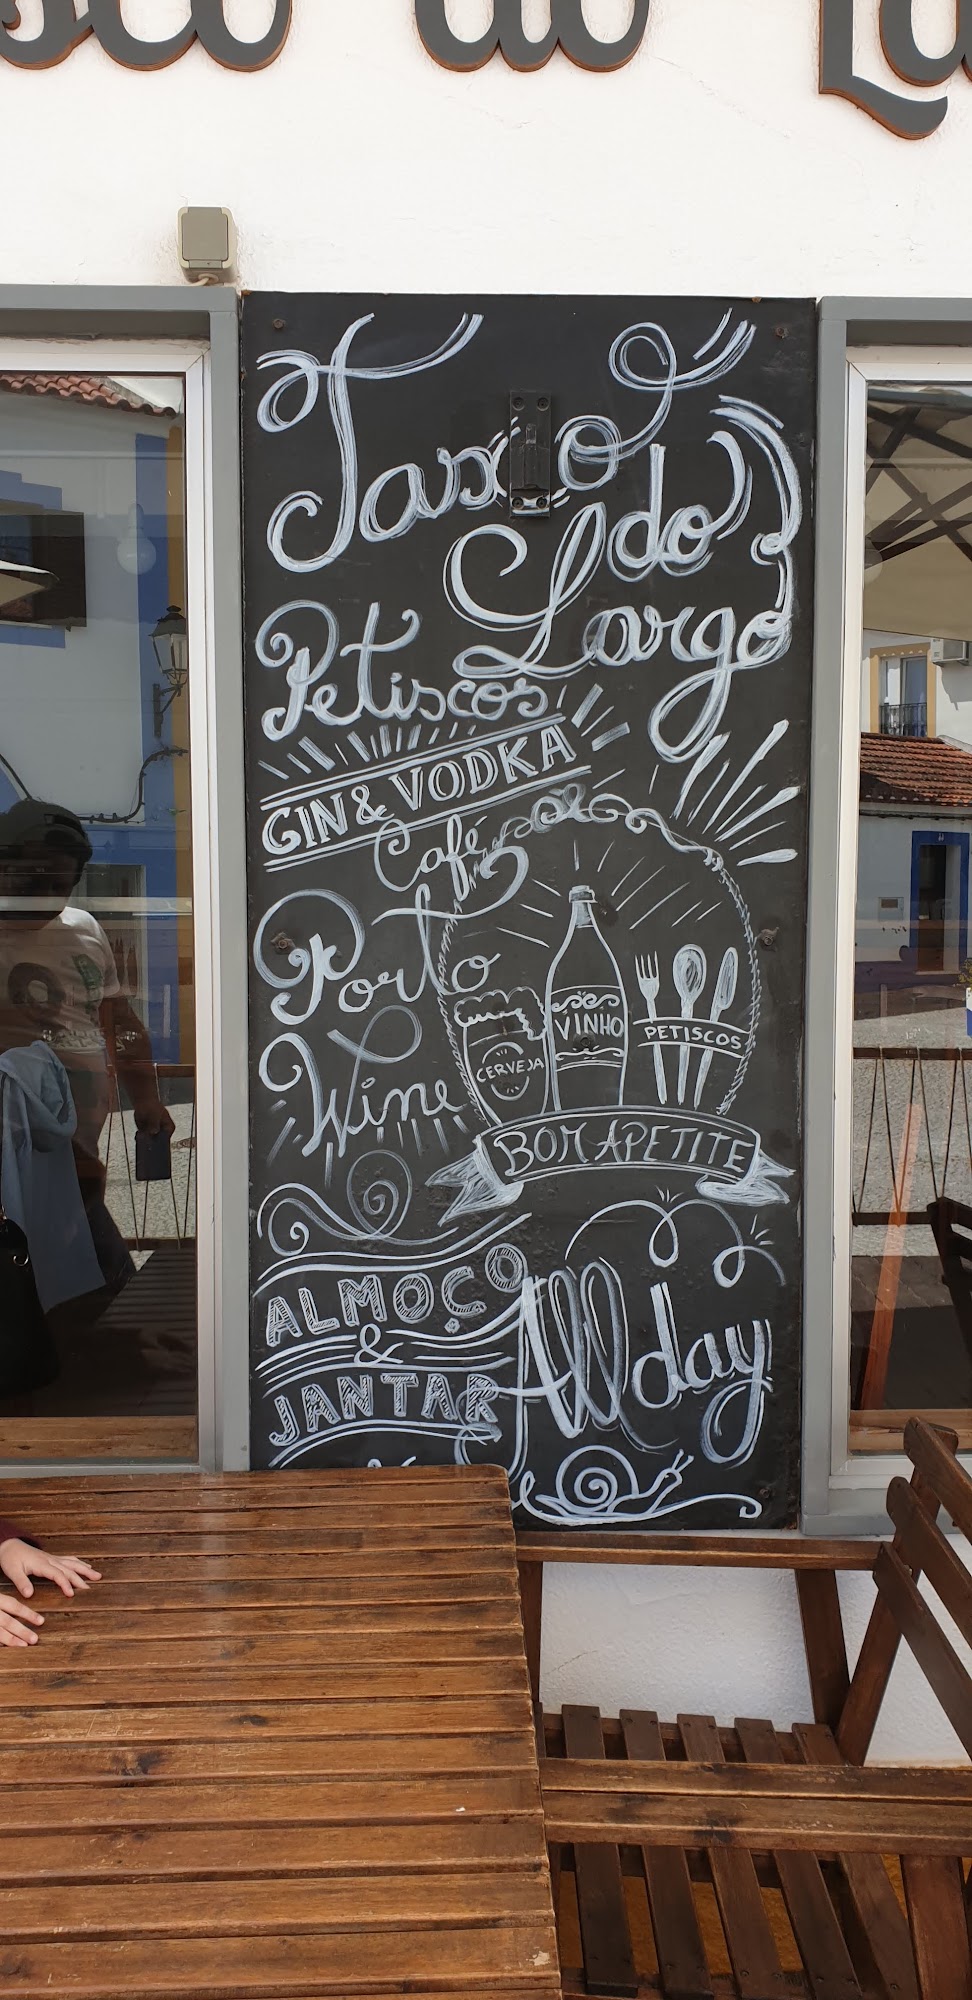 Tasco
do
Largo
Petiscos
GIN & VODKA
Café
Porto
Wine
CERVEJA
VINHO
PETISCOS
BOM APETITE
ALMOÇO
&
JANTAR
All day